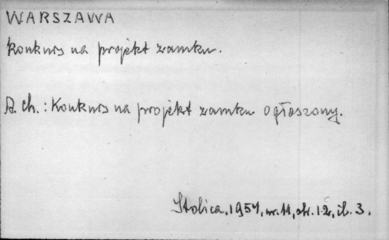 WARSZAWA
Konkurs na projekt zamku.
A ch.: Konkurs na projekt zamku ogłoszony.
Stolica, 1957, nr. 11, str. 12, il. 3.